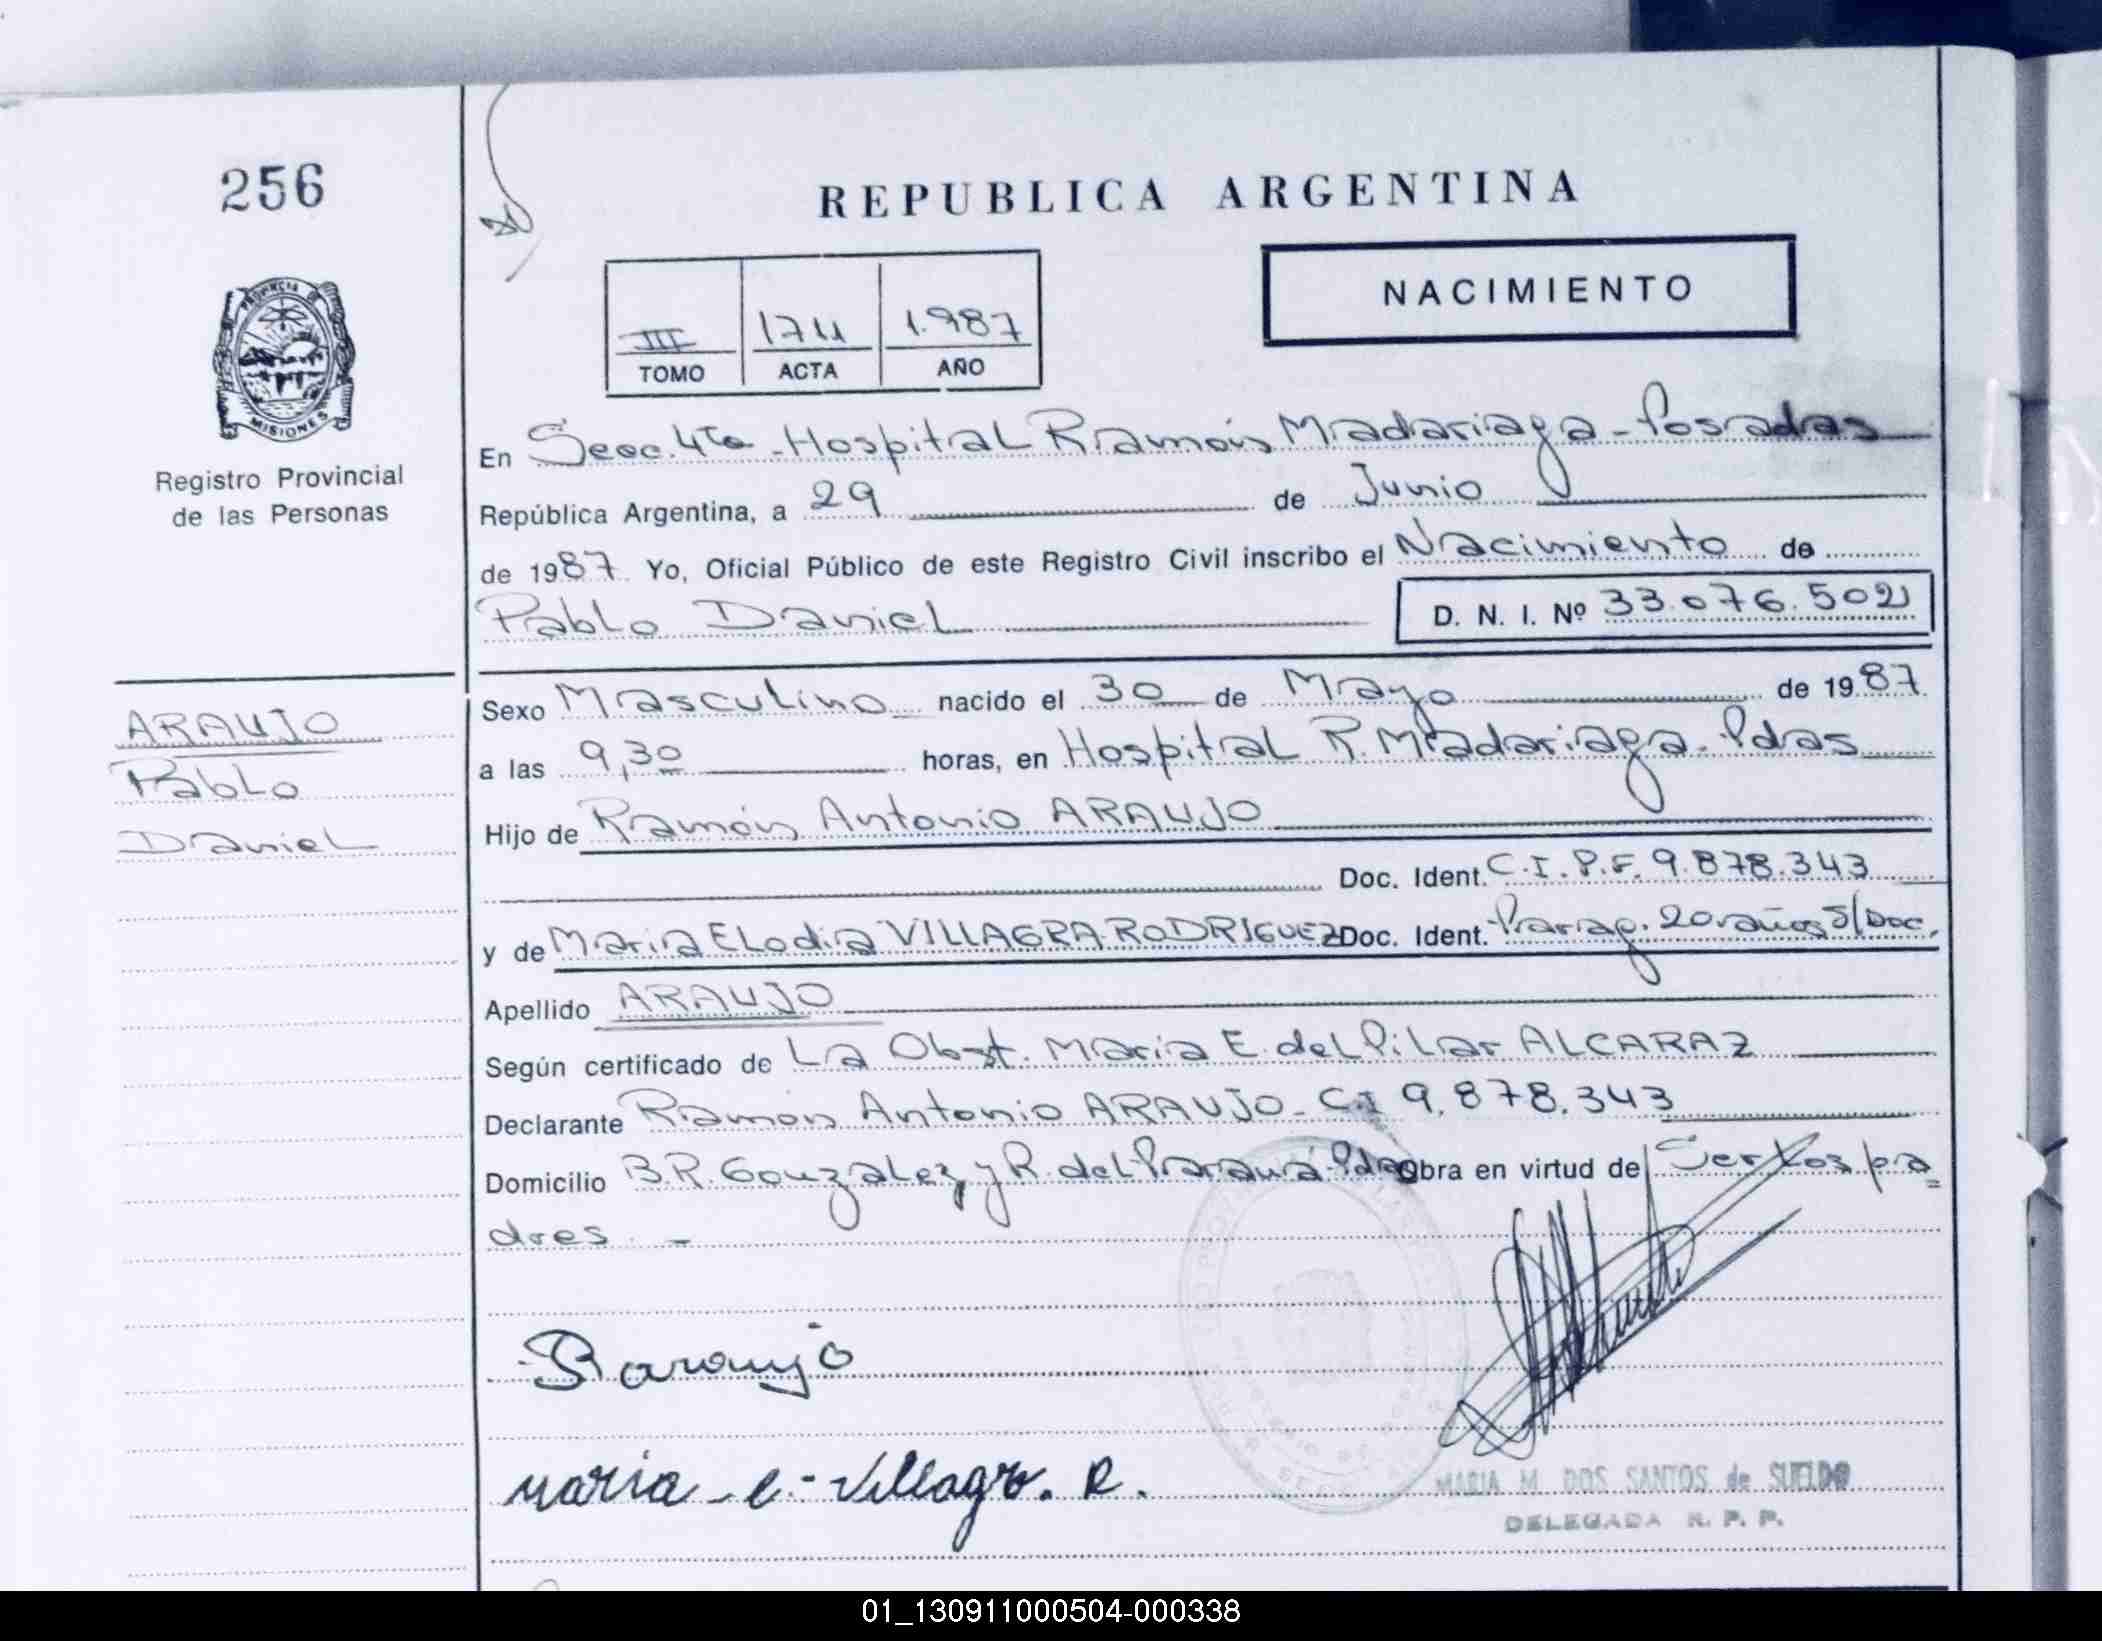 256
REPUBLICA ARGENTINA
NACIMIENTO
III 1711 1.987
TOMO ACTA AÑO
PROVINCIA
MISIONES
Registro Provincial
de las Personas
En Secc. 4ta - Hospital Ramón Madariaga - Posadas
República Argentina, a 29 de Junio
de 1987. Yo, Oficial Público de este Registro Civil inscribo el Nacimiento de
Pablo Daniel D. N. I. Nº 33.076.502
ARAUJO
Pablo
Daniel
Sexo Masculino nacido el 30 de Mayo de 1987
a las 9,30 horas, en Hospital R. Madariaga - Pdas
Hijo de Ramón Antonio ARAUJO
Doc. Ident. C.I.P.F. 9.878.343
y de Maria Elodia VILLAGRA RODRIGUEZ Doc. Ident. Parag. 20 años S/Doc.
Apellido ARAUJO
Según certificado de La Obst. Maria E. del Pilar ALCARAZ
Declarante Ramón Antonio ARAUJO - C.I 9.878.343
Domicilio B.R. Gonzalez y R. del Paraná - Pdas Obra en virtud de Ser los pa=
dres. -
R araujo
maria - e - Villagra. R.
MARIA M. DOS SANTOS de SUELDO
DELEGADA R. P. P.
01_130911000504-000338